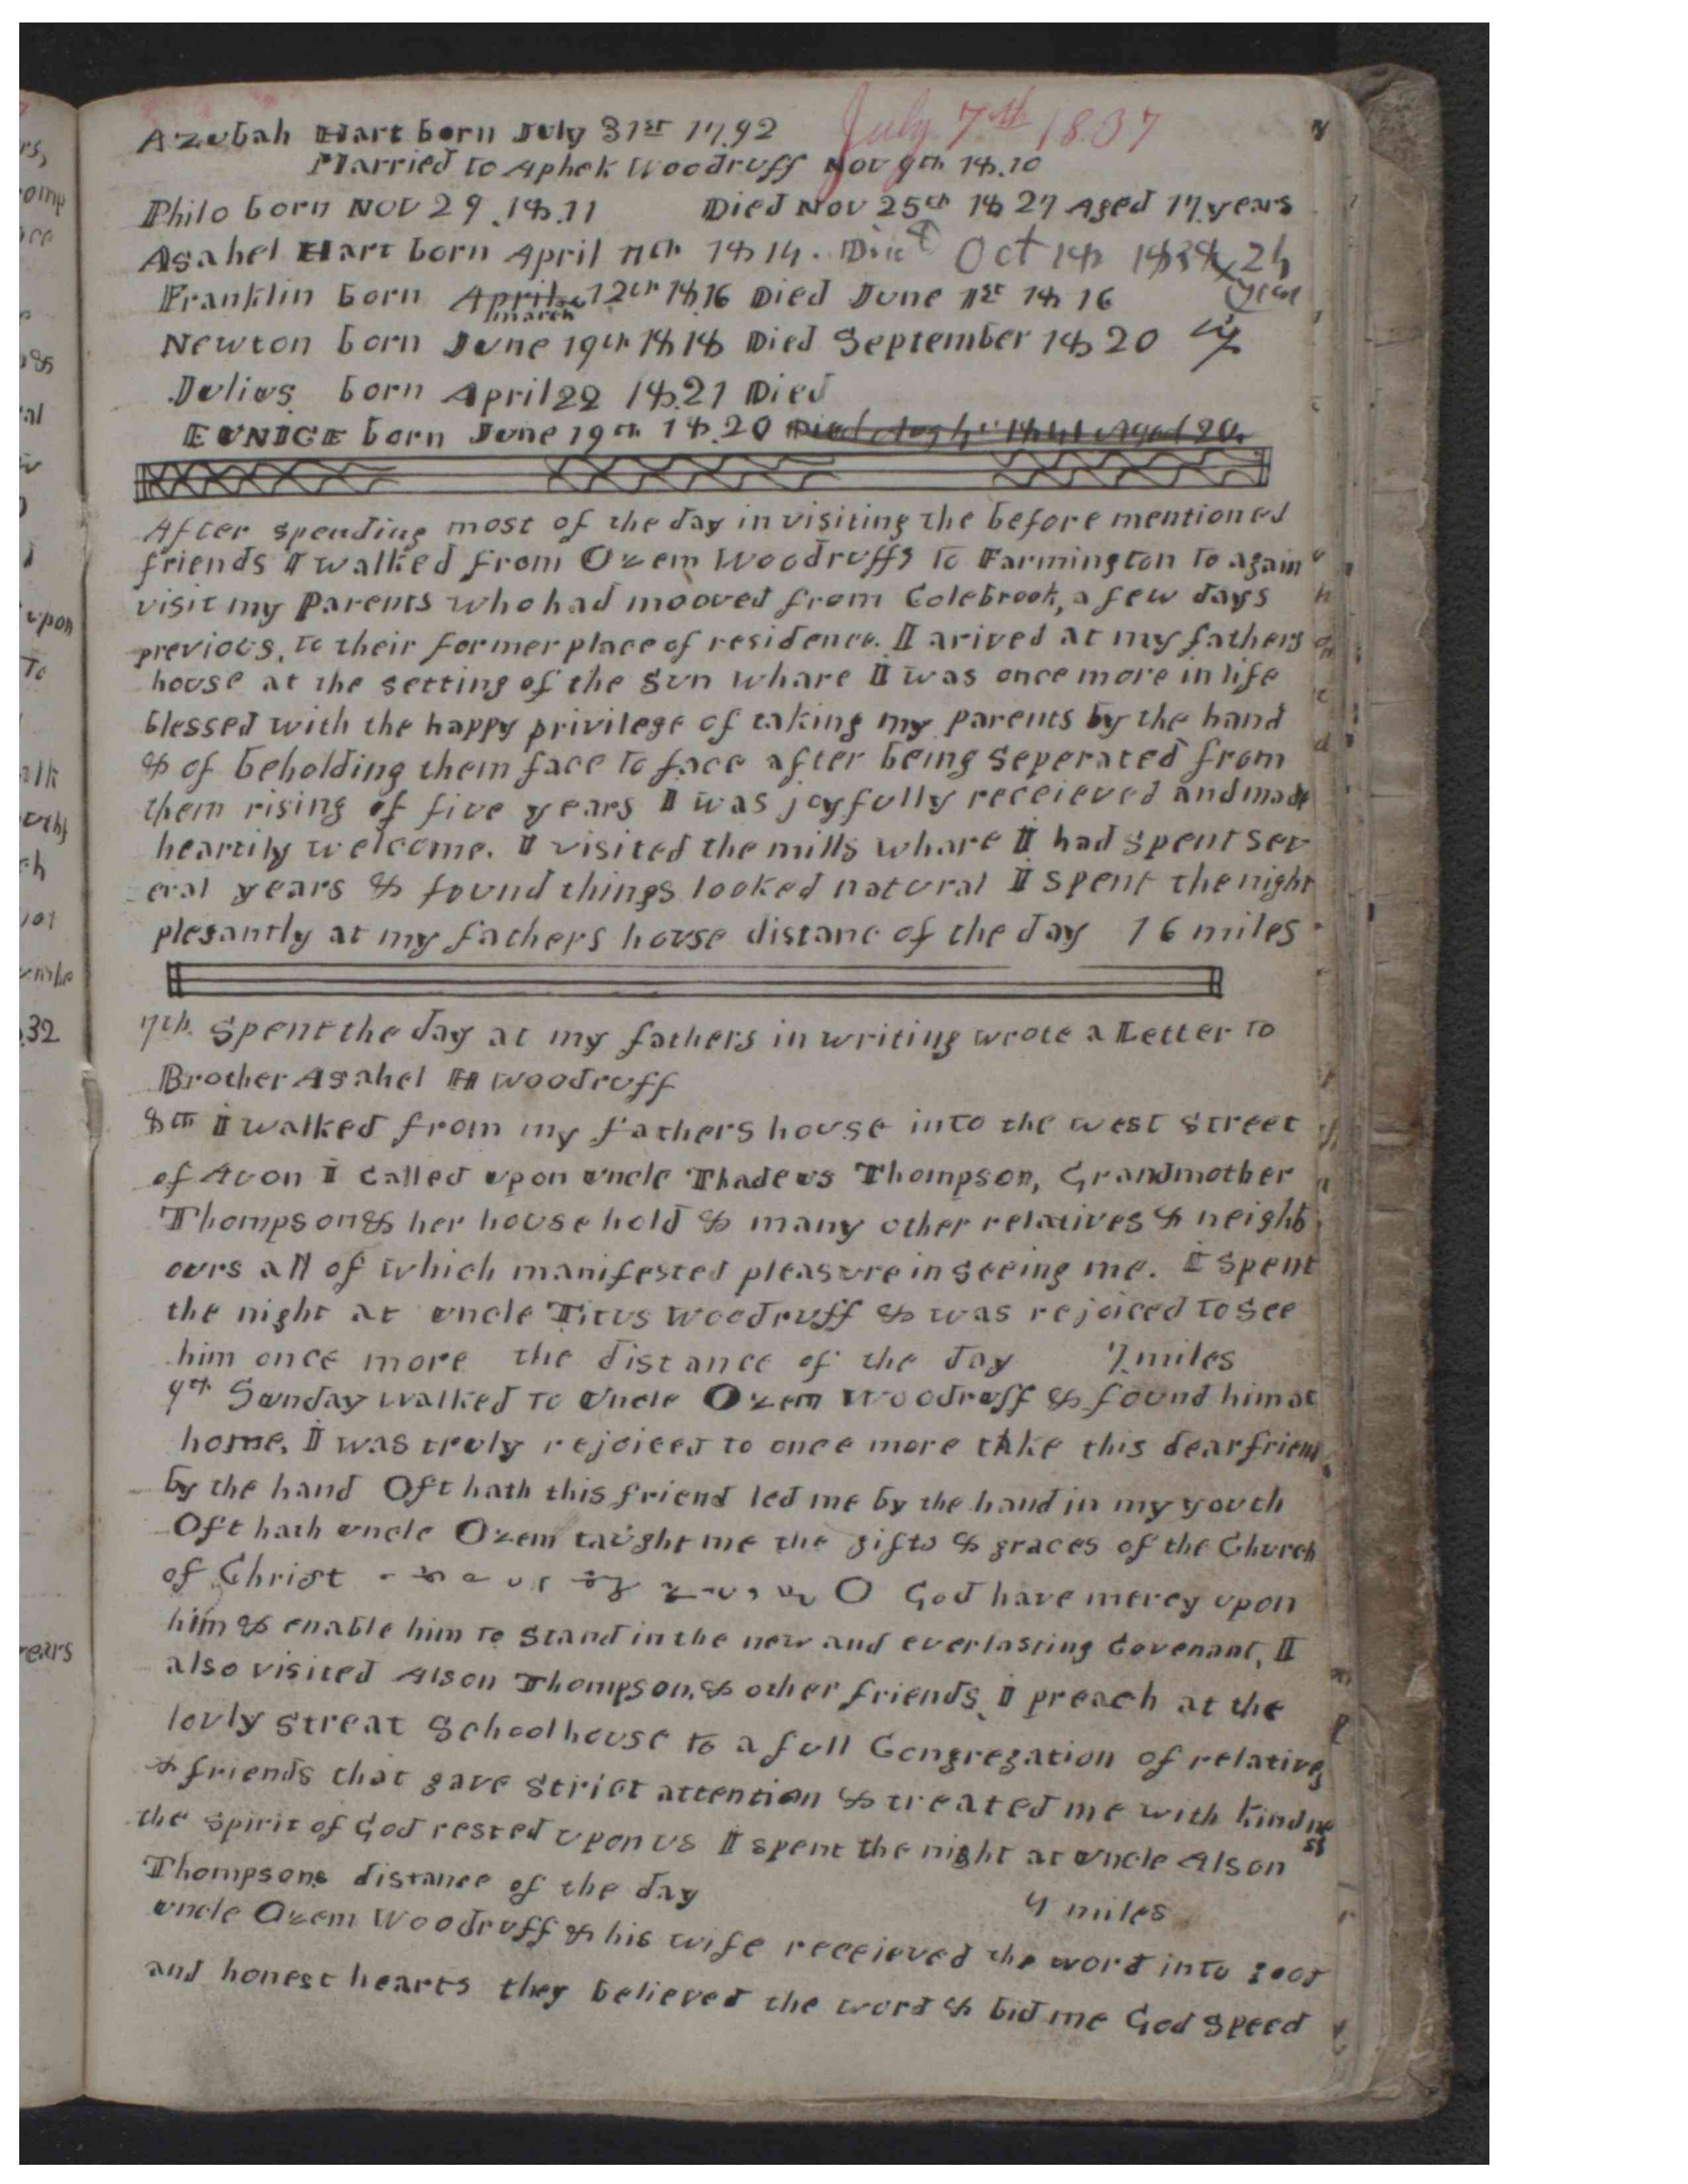 July 7th 1837
Azubah Hart born July 31st 1792
Married to Aphek Woodruff Nov 9th 18.10
Philo born Nov 29 .18.11 Died Nov 25th 1827 Aged 17. years
Asahel Hart born April 11th 1814. Died Oct 18 1838 24 years
Franklin born April 12th 1816 Died June 1st 1816
march
Newton born June 19th 1818 Died September 1820
Julius born April 22 18.21 Died
EUNICE born June 19th 18.20 Died Aug 1841 Aged 20.
After spending most of the day in visiting the before mentioned
friends I walked from Ozem Woodruffs to Farmington to again
visit my Parents who had mooved from Colebrook, a few days
previous, to their former place of residence. I arived at my fathers
house at the setting of the Sun whare I was once more in life
blessed with the happy privilege of taking my parents by the hand
& of beholding them face to face after being seperated from
them rising of five years I was joyfully receieved and made
heartily welcome. I visited the mills whare I had spent sev
eral years & found things looked natural I spent the night
plesantly at my fathers house distanc of the day 16 miles
7th. Spent the day at my fathers in writing wrote a Letter to
Brother Asahel H Woodruff
8th I walked from my fathers house into the west street
of Avon I called upon uncle Thadeus Thompson, Grandmother
Thompson & her house hold & many other relatives & neighb
ours all of which manifested pleasure in seeing me. I spent
the night at uncle Titus Woodruff & was rejoiced to see
him once more the distance of the day 7. miles
9th Sunday walked to Uncle Ozem Woodruff & found him at
home, I was truly rejoiced to once more take this dear friend
by the hand Oft hath this friend led me by the hand in my youth
Oft hath uncle Ozem taught me the gifts & graces of the Church
of Christ O God have mercy upon
him & enable him to stand in the new and everlasting Covenant, I
also visited Alson Thompson, & other friends I preach at the
lovly streat Schoolhouse to a full Congregation of relatives
& friends that gave strict attention & treated me with kindne
ss
the spirit of God rested upon us I spent the night at uncle Alson
Thompsons distance of the day 4 miles
uncle Ozem Woodruff & his wife receieved the word into good
and honest hearts they believed the word & bid me God speed